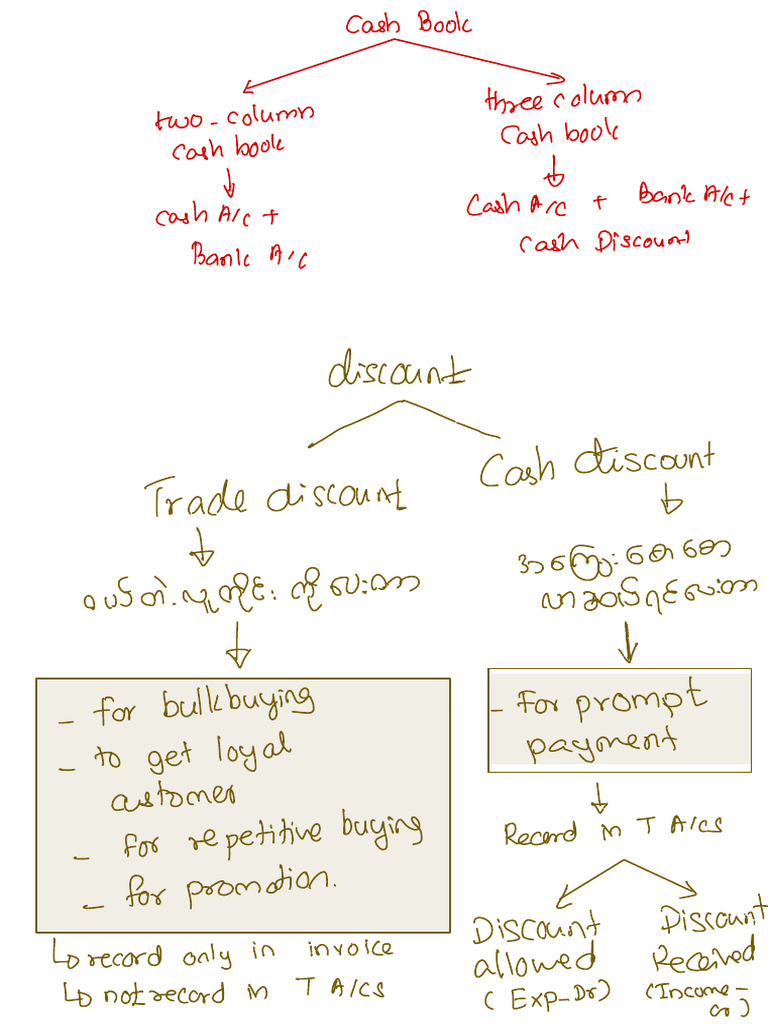 Cash Book
two-column
cash book
cash A/C +
Bank A/C
three column
Cash book
Cash A/C + Bank A/C +
Cash Discount
discount
Trade discount
ဝယ်တဲ့လူတိုင်းကိုပေးတာ
- for bulk buying
- to get loyal
customer
- for repetitive buying
- for promotion.
↳ record only in invoice
↳ not record in T A/CS
Cash discount
အကြွေးစောစော
လာဆပ်ရင်ပေးတာ
- For prompt
payment
Record in T A/CS
Discount
allowed
(Exp-Dr)
Discount
Received
(Income-
cr)